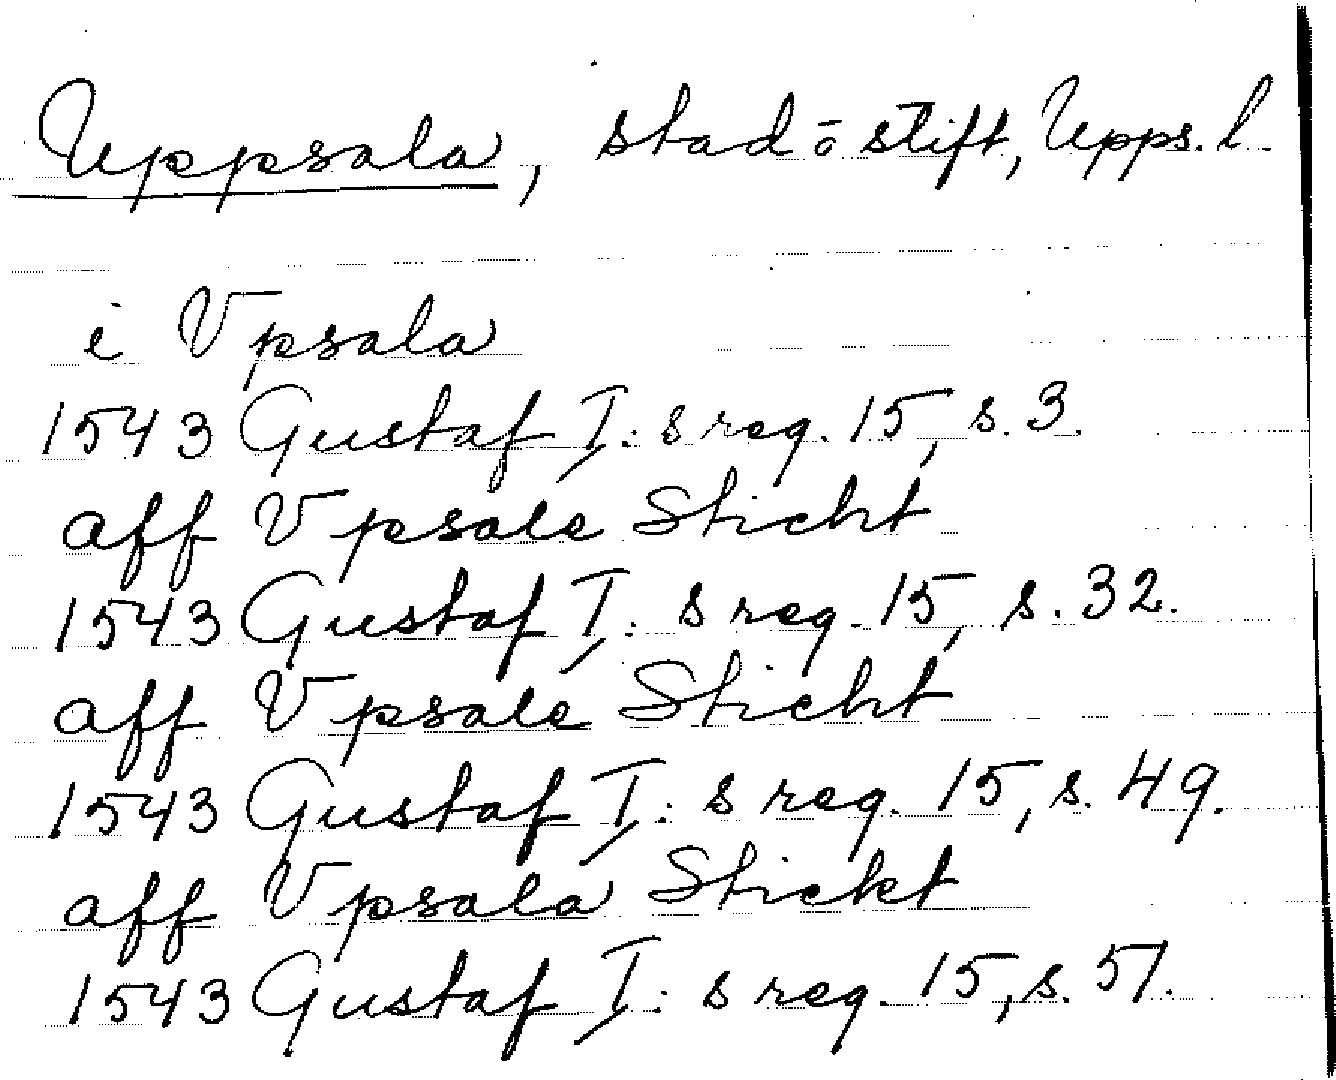 Uppsala, stad ō stift, Upps. l.
i Vpsala
1543 Gustaf I: s reg. 15, s. 3.
aff Vpsale Sticht
1543 Gustaf I: s reg. 15, s. 32.
aff Vpsale Sticht
1543 Gustaf I: s reg. 15, s. 49.
aff Vpsala Stickt
1543 Gustaf I: s reg. 15, s. 51.